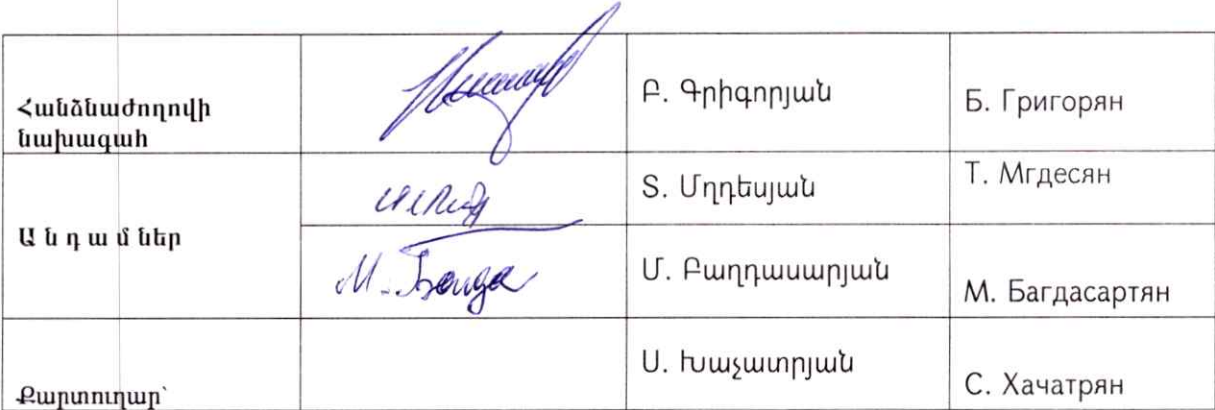 Հանձնաժողովի
նախագահ
Բ. Գրիգորյան
Б. Григорян
Ա ն դ ա մ ներ
Տ. Մղդեսյան
Т. Мгдесян
М. Багда
Մ. Բաղդասարյան
М. Багдасартян
Քարտուղար՝
Ս. Խաչատրյան
С. Хачатрян